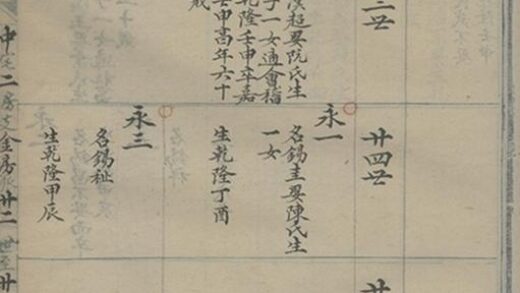 二世
漢超娶阮氏生
子一女適會稽
乾隆壬申卒嘉
壬申高年六十
歲
廿四世
永一
名錫圭娶陳氏生
一女
生乾隆丁酉
永三
名錫祉
生乾隆甲辰
廿
中宅二房文金房派廿二世至廿